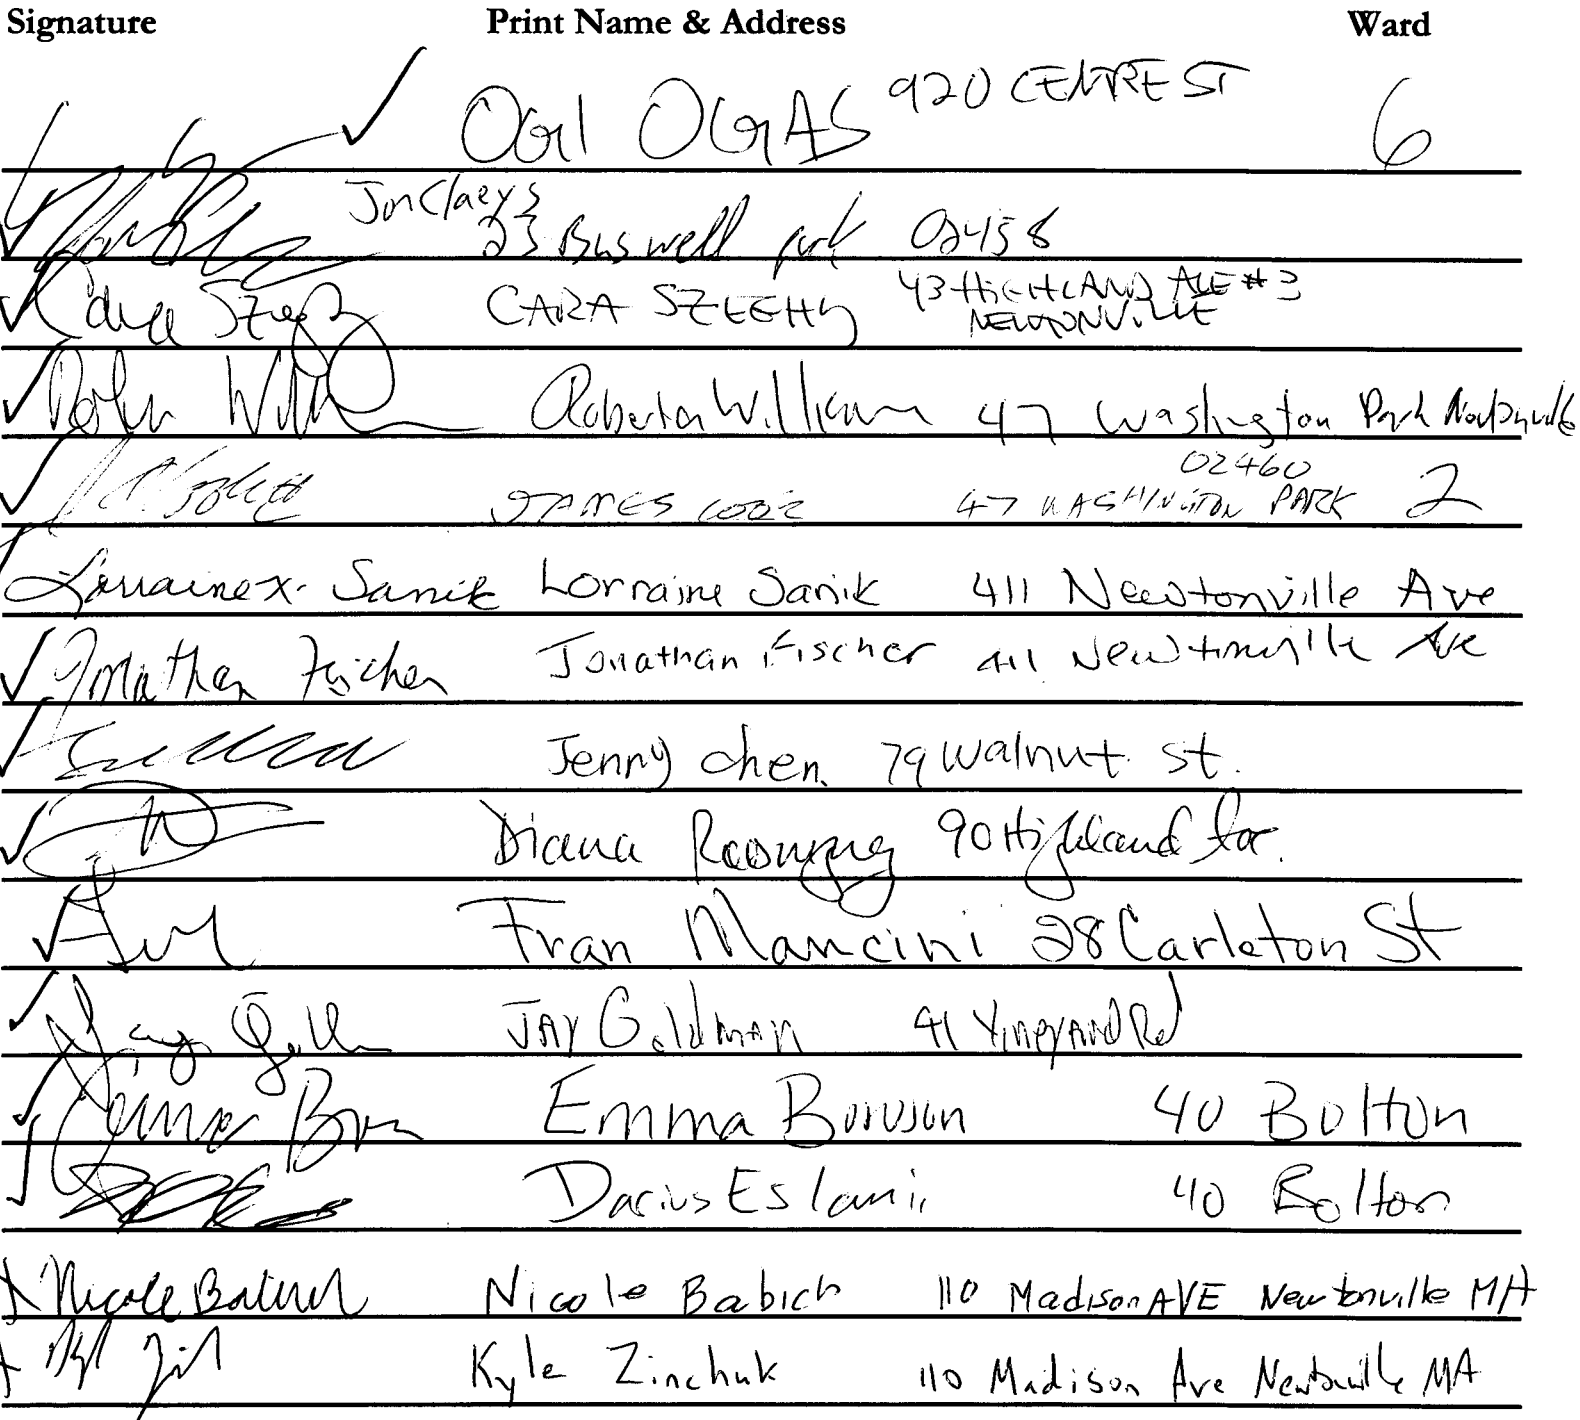 Signature Print Name & Address Ward
OGI OGAS 920 CENTRE ST 6
Jon Claeys
23 Buswell park 02458
Cara CARA SZEEHY 43 HIGHLAND AVE #3
NEWTONVILLE
Roberta Williams 47 Washington Park Newtonville
02460
JAMES 47 WASHINGTON PARK 2
Lorraine Sanik Lorraine Sanik 411 Newtonville Ave
Jonathan Fischer Jonathan Fischer 411 Newtonville Ave
Jenny chen. 79 walnut st.
Diana 90 Highland
Fran Mancini 28 Carleton St
JAY Goldman 41 Vineyard Rd
Emma 40 Bolton
Darius Eslami 40 Bolton
Nicole Babich Nicole Babich 110 Madison AVE Newtonville MA
Kyle Zinchuk 110 Madison Ave Newtonville MA